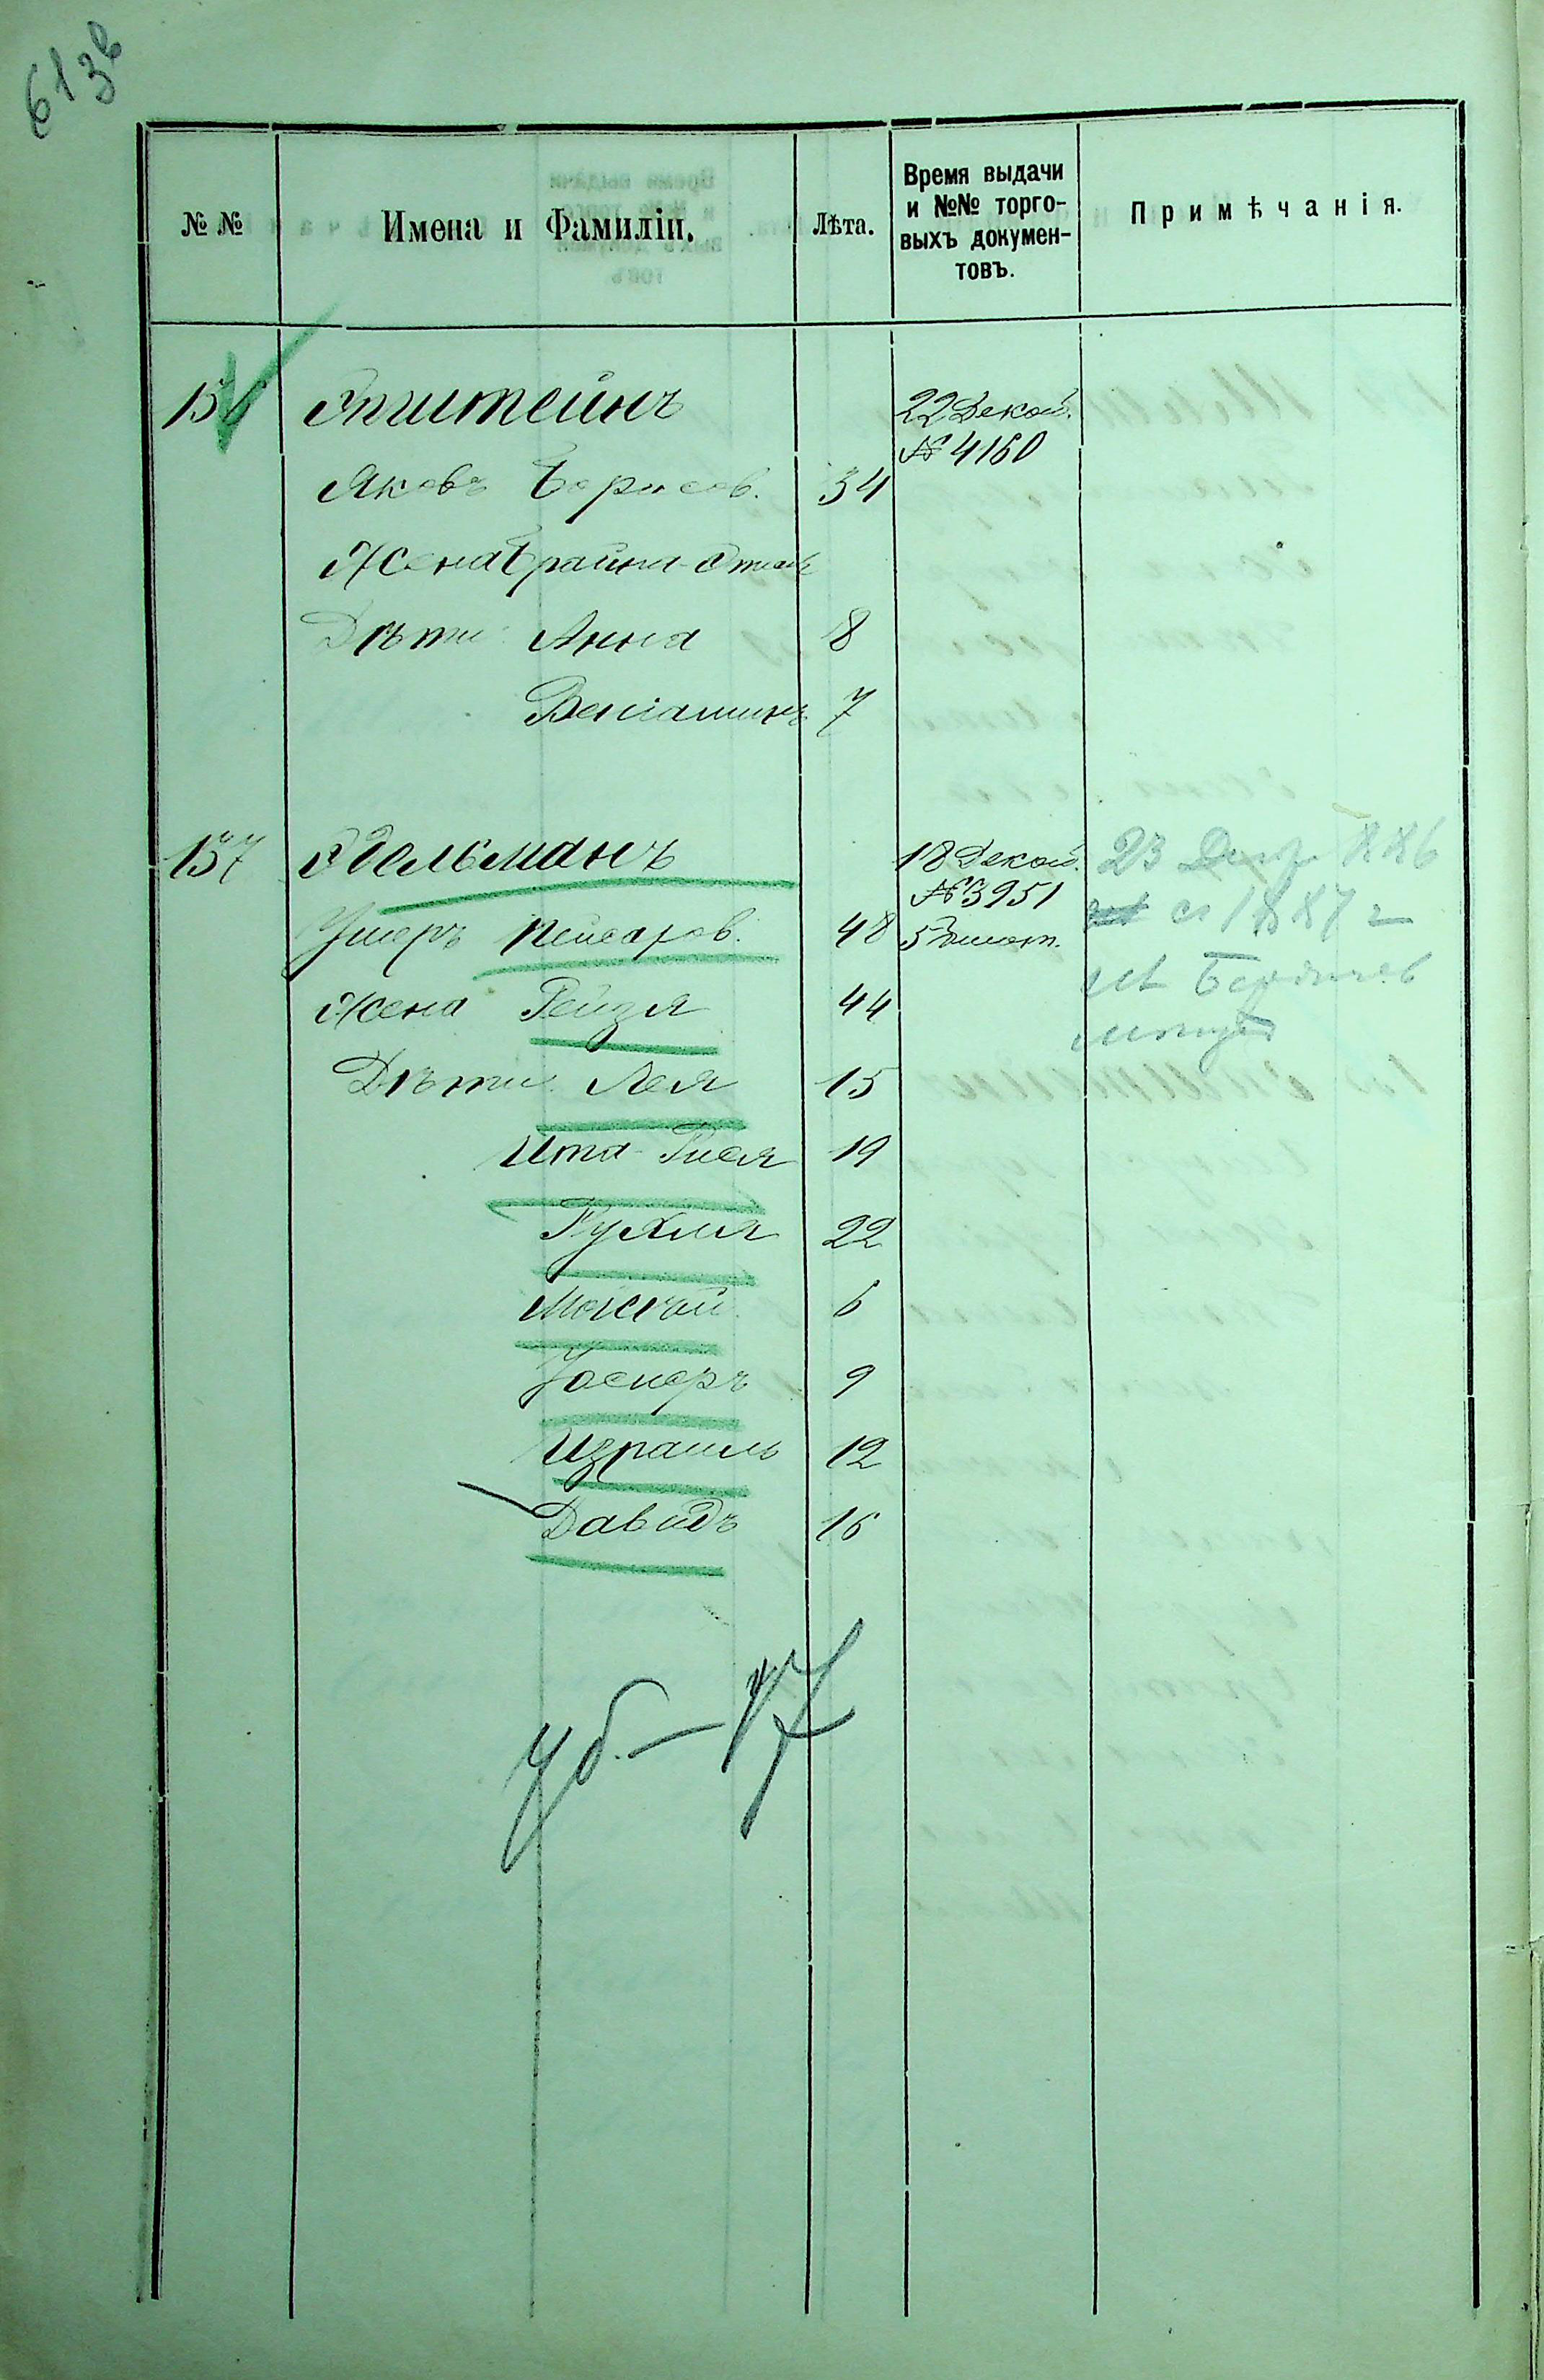 613в
№ №
Имена и Фамиліи.
Лѣта.
Время выдачи
и №№ торго-
выхъ докумен-
товъ.
Примѣчанія.
156 Эпштейнъ 22 Декаб.
№ 4160
Яковъ Борисов. 34
Жена Брайна-Этель
Дѣти: Анна 8
Веніаминъ 7
157 Эдельманъ 18 Декаб. 23 Дек 886
№ 3951 с 1887 г
Ушеръ Пейсахов. 48
Жена Рейзя 44 Бердичев
Дѣти: Лея 15
Ита-Рися 19
Рухля 22
Моисѣй 6
Іосифъ 9
Израиль 12
Давидъ 16